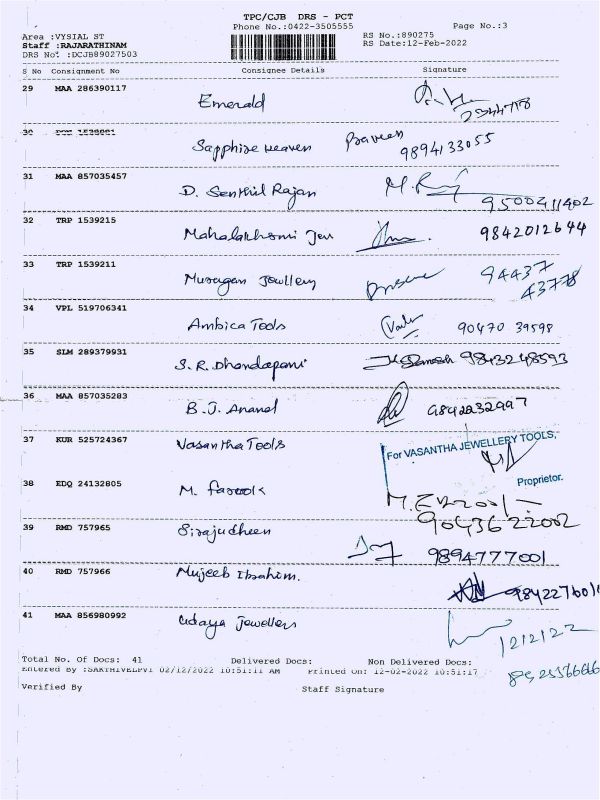 TPC/CJB DRS - PCT
Phone No.:0422-3505555 Page No.:3
Area :VYSIAL ST RS No.:890275
Staff :RAJARATHINAM RS Date:12-Feb-2022
DRS No. :DCJB89027503
S No Consignment No Consignee Details Signature
29 MAA 286390117 Emerald
30 1538881 Sapphire Heaven Praveen 9894133055
31 MAA 857035457 D. Senthil Rajan 9500411402
32 TRP 1539215 Mahalakhsmi Jew 9842012644
33 TRP 1539211 Murugan Jowllery 94437 43778
34 VPL 519706341 Ambica Tools 90470 39598
35 SLM 289379931 S.R. Dhandapani 9843248593
36 MAA 857035283 B.J. Anand 9842232997
37 KUR 525724367 Vasantha Tools For VASANTHA JEWELLERY TOOLS,
Proprietor.
38 EDQ 24132805 M. farook 9043622002
39 RMD 757965 Sirajudheen 9894777001
40 RMD 757966 Mujeeb Ibrahim.
41 MAA 856980992 Udaya Jewellers 12/2/22
Total No. Of Docs: 41 Delivered Docs: Non Delivered Docs:
Entered By :SAKTHIVELPV1 02/12/2022 10:51:11 AM Printed On: 12-02-2022 10:51:17
Verified By Staff Signature